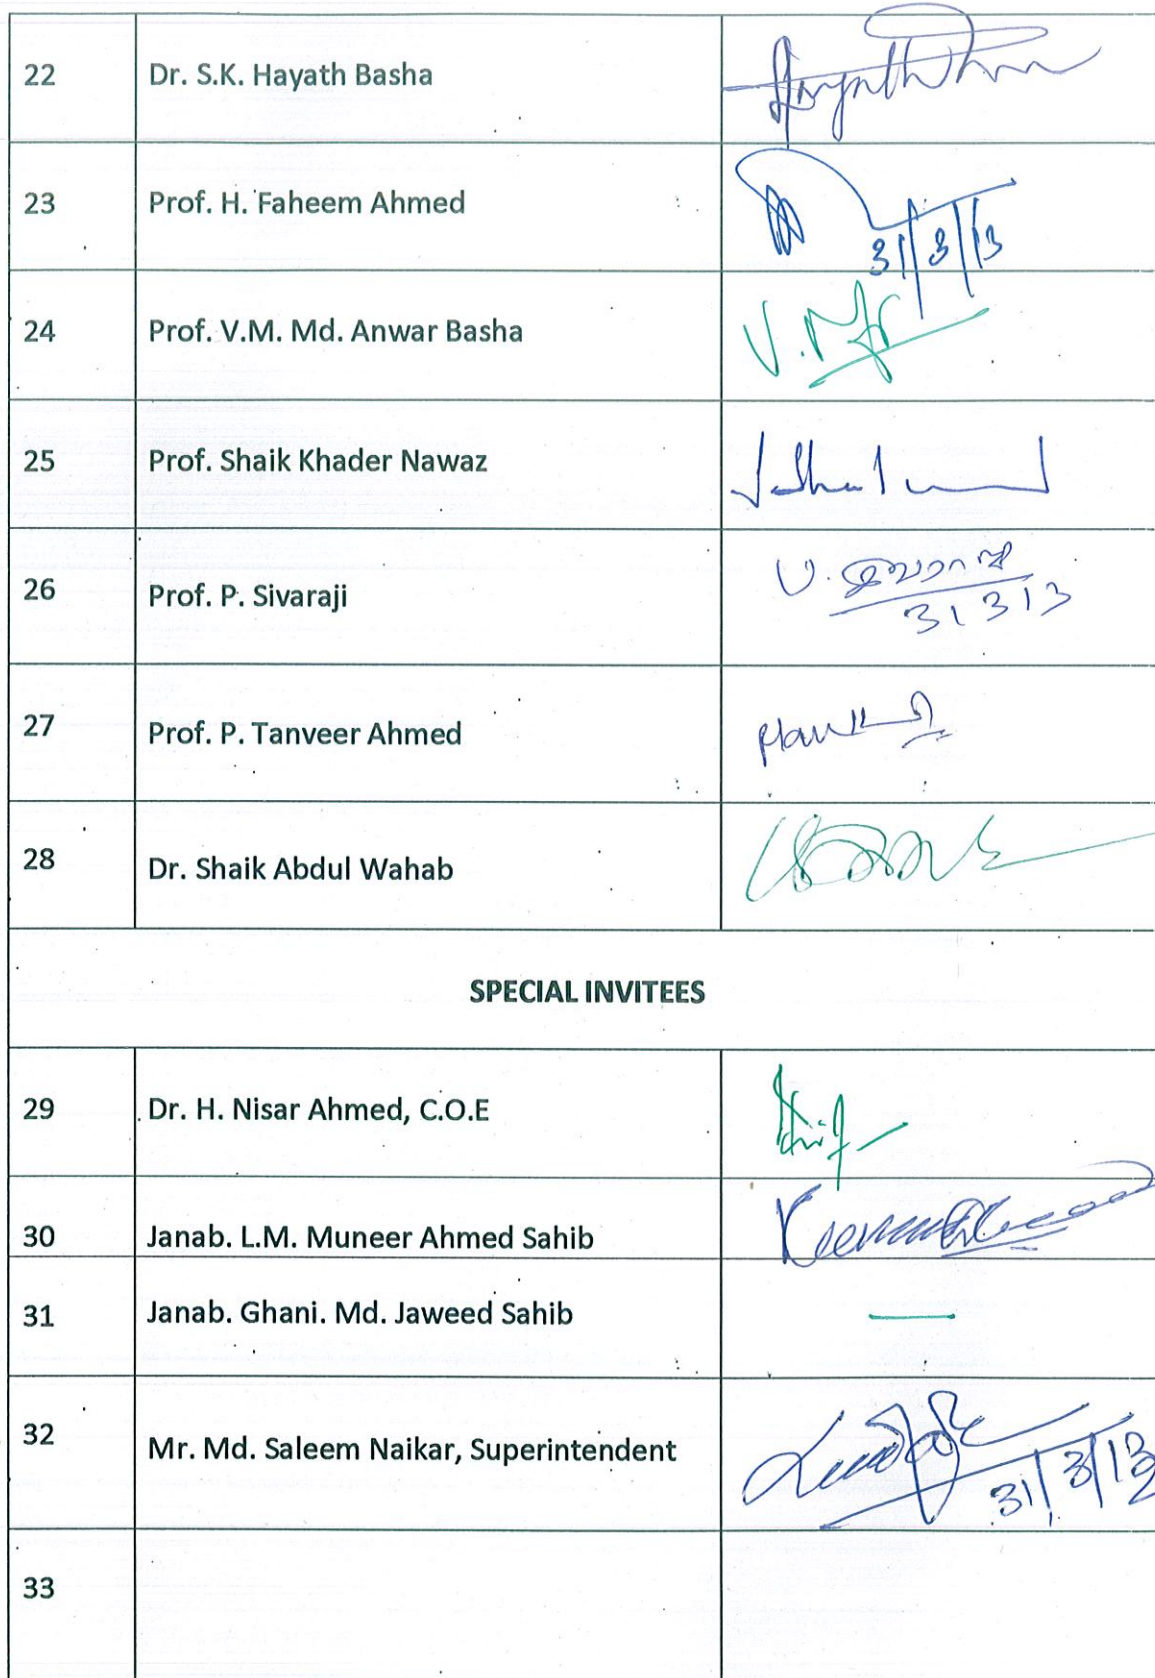 22 Dr. S.K. Hayath Basha
23 Prof. H. Faheem Ahmed
31/3/13
24 Prof. V.M. Md. Anwar Basha
25 Prof. Shaik Khader Nawaz
26 Prof. P. Sivaraji
31313
27 Prof. P. Tanveer Ahmed
28 Dr. Shaik Abdul Wahab
SPECIAL INVITEES
29 Dr. H. Nisar Ahmed, C.O.E
30 Janab. L.M. Muneer Ahmed Sahib
31 Janab. Ghani. Md. Jaweed Sahib —
32 Mr. Md. Saleem Naikar, Superintendent
31/3/13
33